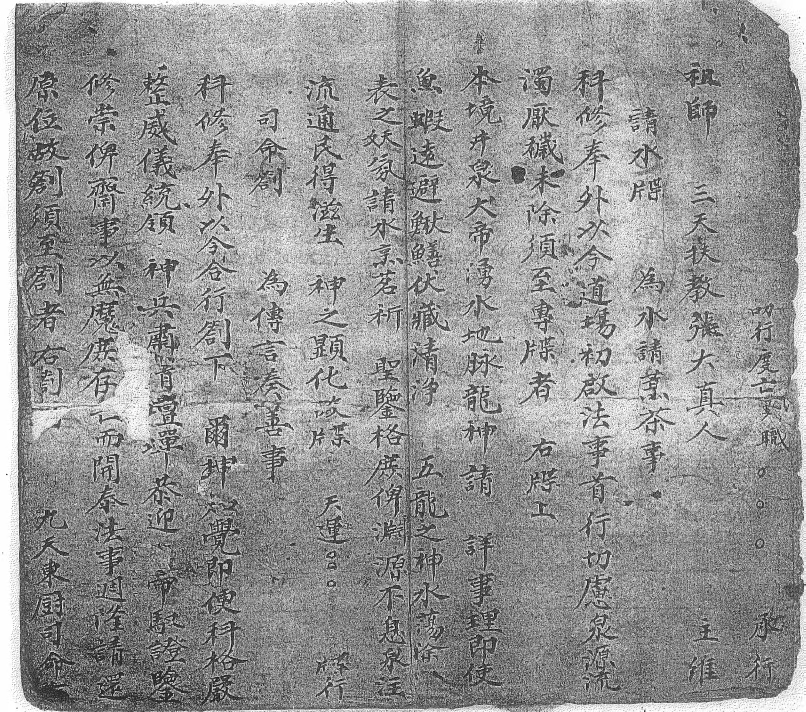 叨行度亡 職。。。 承行
祖師 三天扶教張大真人 主維
請水牒 為水請薰茶事
科修奉外以今道場初啟法事首行切慮泉源流
濁厭穢未除須至專牒者 右牒上
本境井泉大帝湧水地脉龍神 請 詳事理即使
魚蝦遠避鰍鱔伏藏清淨 五龍之神水蕩除
表之妖氛請水烹茗祈 聖鑒格庶俾淵源不息泉注
流通民得滋生 神之顯化 牒 天運。。。 牒行
司命劄 為傳言奏善事
科修奉外以今合行劄下 爾神 覺即便科格嚴
整威儀統領 神兵肅清壇墠恭迎 帝馭證鑒
修崇俾齋事以無魔庶存亡而開泰法事週隆請還
原位故劄須至劄者 右劄 九天東厨司命